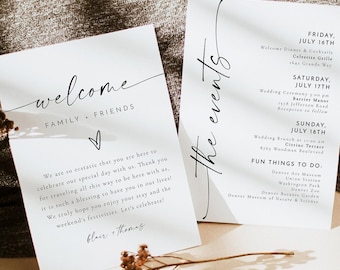 welcome
FAMILY + FRIENDS
We are so ecstatic that you are here to
celebrate our special day with us. Thank you
for traveling all this way to be here with us,
it is such a blessing to have you in our lives!
We truly hope you enjoy your stay and the
weekend's festivities. Let's celebrate!
Blair + Thomas
the events
FRIDAY,
JULY 16TH
Welcome Dinner & Cocktails
Celestite Grille
SATURDAY,
JULY 17TH
Wedding Ceremony
Barrier Manor
Reception to follow
SUNDAY,
JULY 18TH
Wedding Brunch
Citrine Terrace
FUN THINGS TO DO:
Denver Art Museum
Union Station
Washington Park
Denver Zoo
Denver Botanic Gardens
Denver Museum of Nature & Science